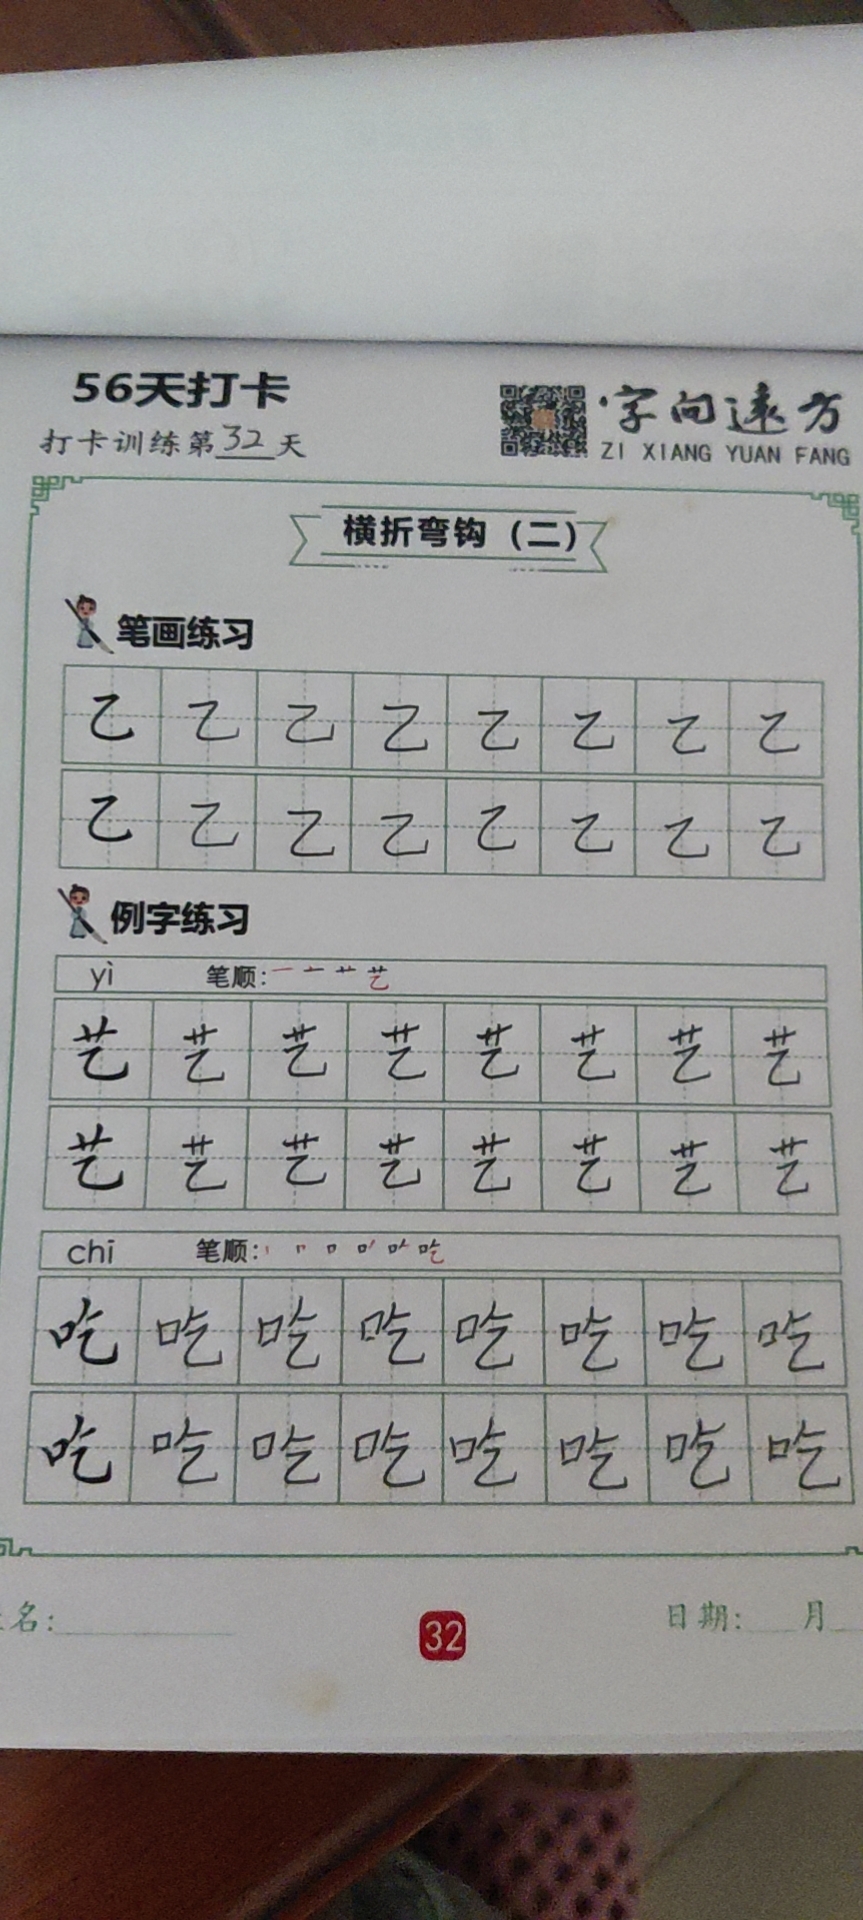 56天打卡
打卡训练第32天
字向远方
ZI XIANG YUAN FANG
横折弯钩（二）
笔画练习
乙 乙 乙 乙 乙 乙 乙 乙
乙 乙 乙 乙 乙 乙 乙 乙
例字练习
yì 笔顺: 一 十 艹 艺
艺 艺 艺 艺 艺 艺 艺 艺
艺 艺 艺 艺 艺 艺 艺 艺
chī 笔顺: 丨 冂 口 吖 吃
吃 吃 吃 吃 吃 吃 吃 吃
吃 吃 吃 吃 吃 吃 吃 吃
名:
32
日期: 月